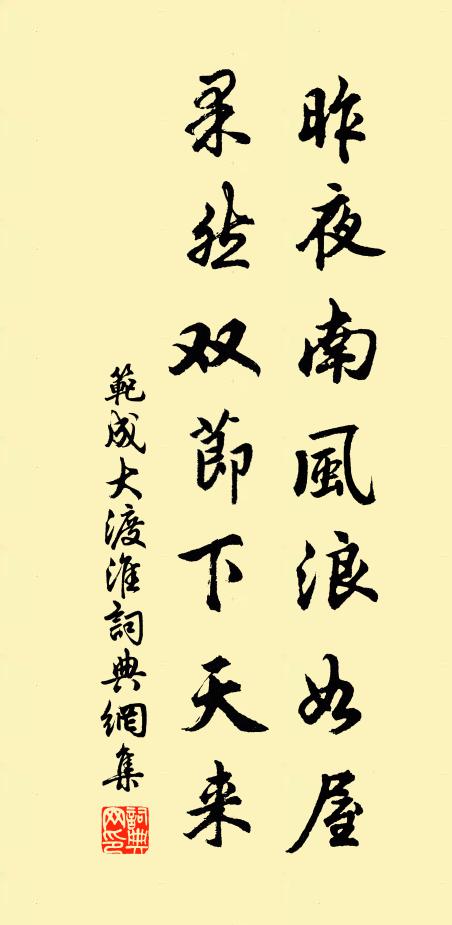 昨夜南風浪如屋
果然双節下天来
範成大渡淮詞典網集
詞典网印